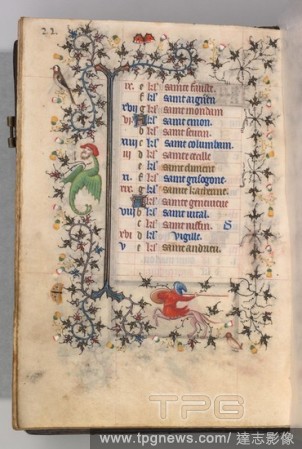 22.
ix e kl' sainte fauste.
f kl' saint aignen
xvii g kl' saint mondain
vi A kl' saint omon.
b kl' saint seurin.
xiiii c kl' saint columban.
iii d kl' sainte cecille
e kl' saint climent
xi f kl' saint grisogone.
xix g kl' sainte katherine.
A kl' sainte genevieve
viii b kl' saint vital.
c kl' saint
xvi d kl' vigille. S
v e kl' saint andrieu.
TPG
www.tpgnews.com/達志影像